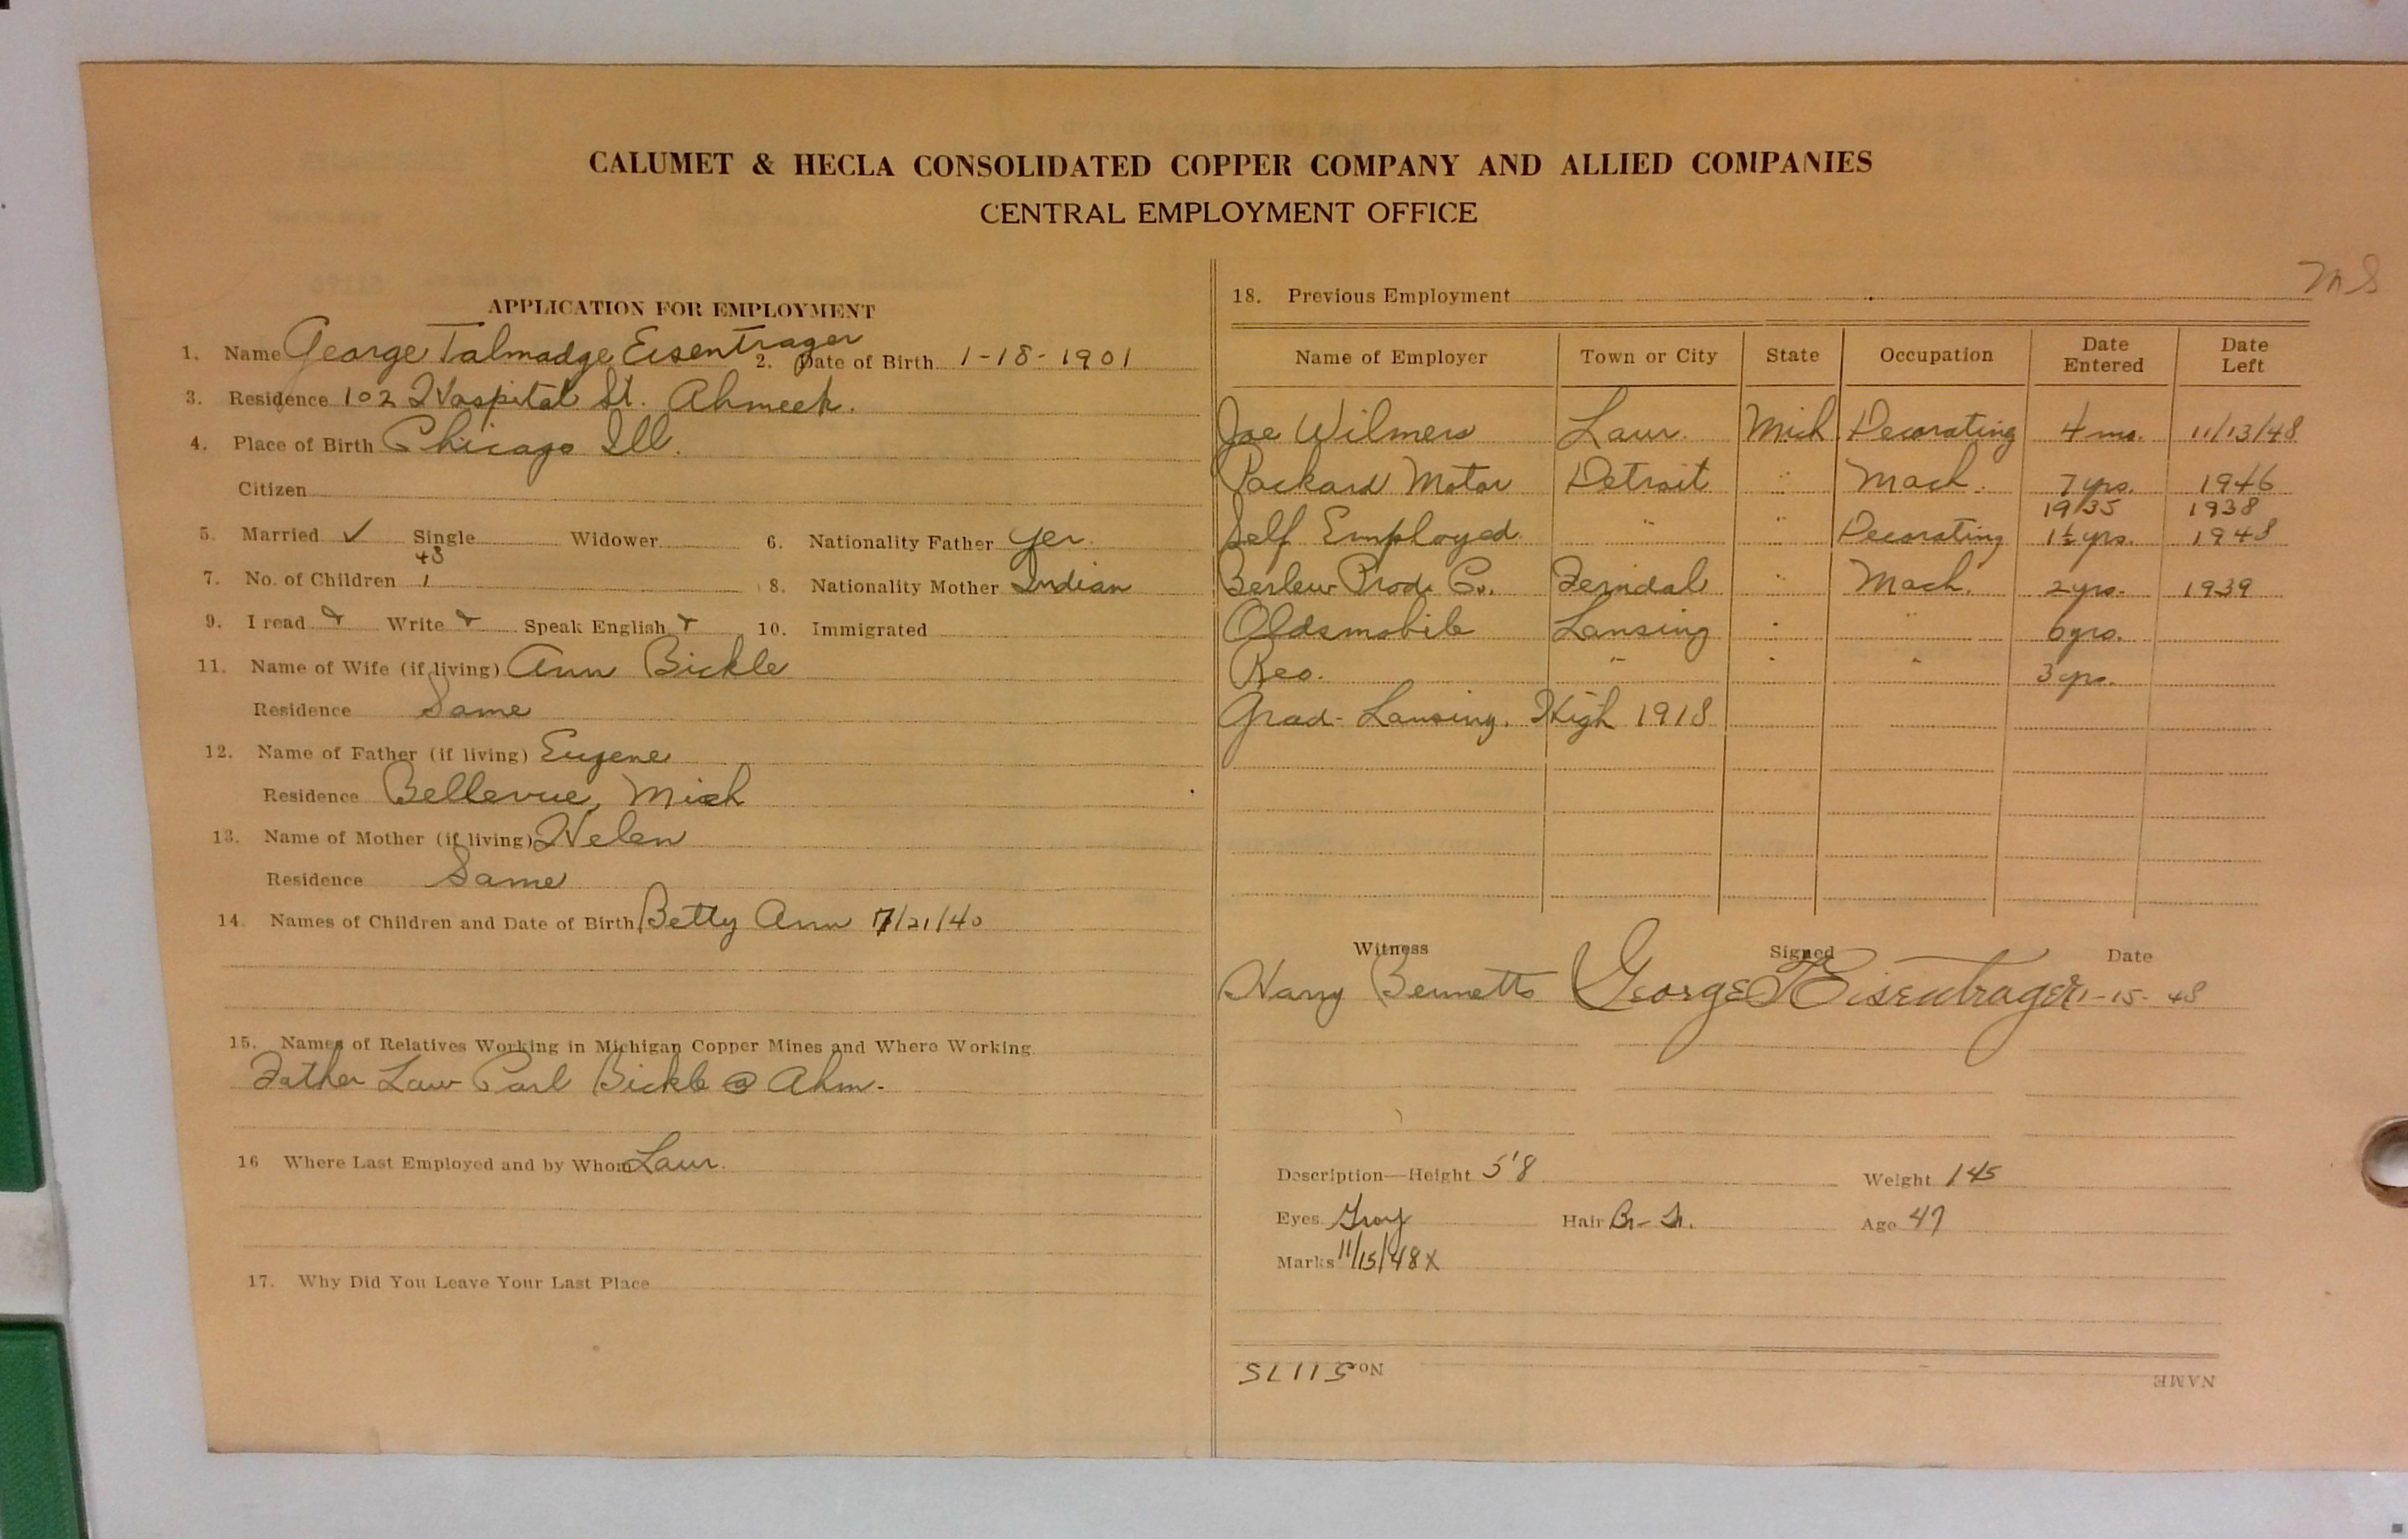 CALUMET & HECLA CONSOLIDATED COPPER COMPANY AND ALLIED COMPANIES
CENTRAL EMPLOYMENT OFFICE
APPLICATION FOR EMPLOYMENT
1. Name George Talmadge Eisentrager 2. Date of Birth 1-18-1901
3. Residence 102 Hospital St. Ahmeek.
4. Place of Birth Chicago Ill.
Citizen
5. Married ✓ Single Widower 6. Nationality Father Ger.
48
7. No. of Children 1 8. Nationality Mother Indian
9. I read Write Speak English 10. Immigrated
11. Name of Wife (if living) Ann Bickle
Residence Same
12. Name of Father (if living) Eugene
Residence Bellevue, Mich
13. Name of Mother (if living) Helen
Residence Same
14. Names of Children and Date of Birth Betty Ann 7/21/40
15. Names of Relatives Working in Michigan Copper Mines and Where Working
Father Law Carl Bickle @ Ahm.
16 Where Last Employed and by Whom Laur.
17. Why Did You Leave Your Last Place
MS
18. Previous Employment
Name of Employer Town or City State Occupation Date Entered Date Left
Joe Wilmers Laur. Mich. Decorating 4 mo. 11/13/48
Packard Motor Detroit " Mach. 7 yrs. 1946
19/35 1938
Self Employed " " Decorating 1½ yrs. 1948
Berlew Prod. Co. Ferndal " Mach. 2 yrs. 1939
Oldsmobile Lansing " " 6 yrs.
Reo. " " " 3 yrs.
Grad- Lansing. High 1918
Witness Signed Date
Harry Bennetts George T Eisentrager 11-15-48
Description—Height 5'8 Weight 145
Eyes Gray Hair Br-Gr. Age 47
Marks 11/15/48 X
No 51175 NAME